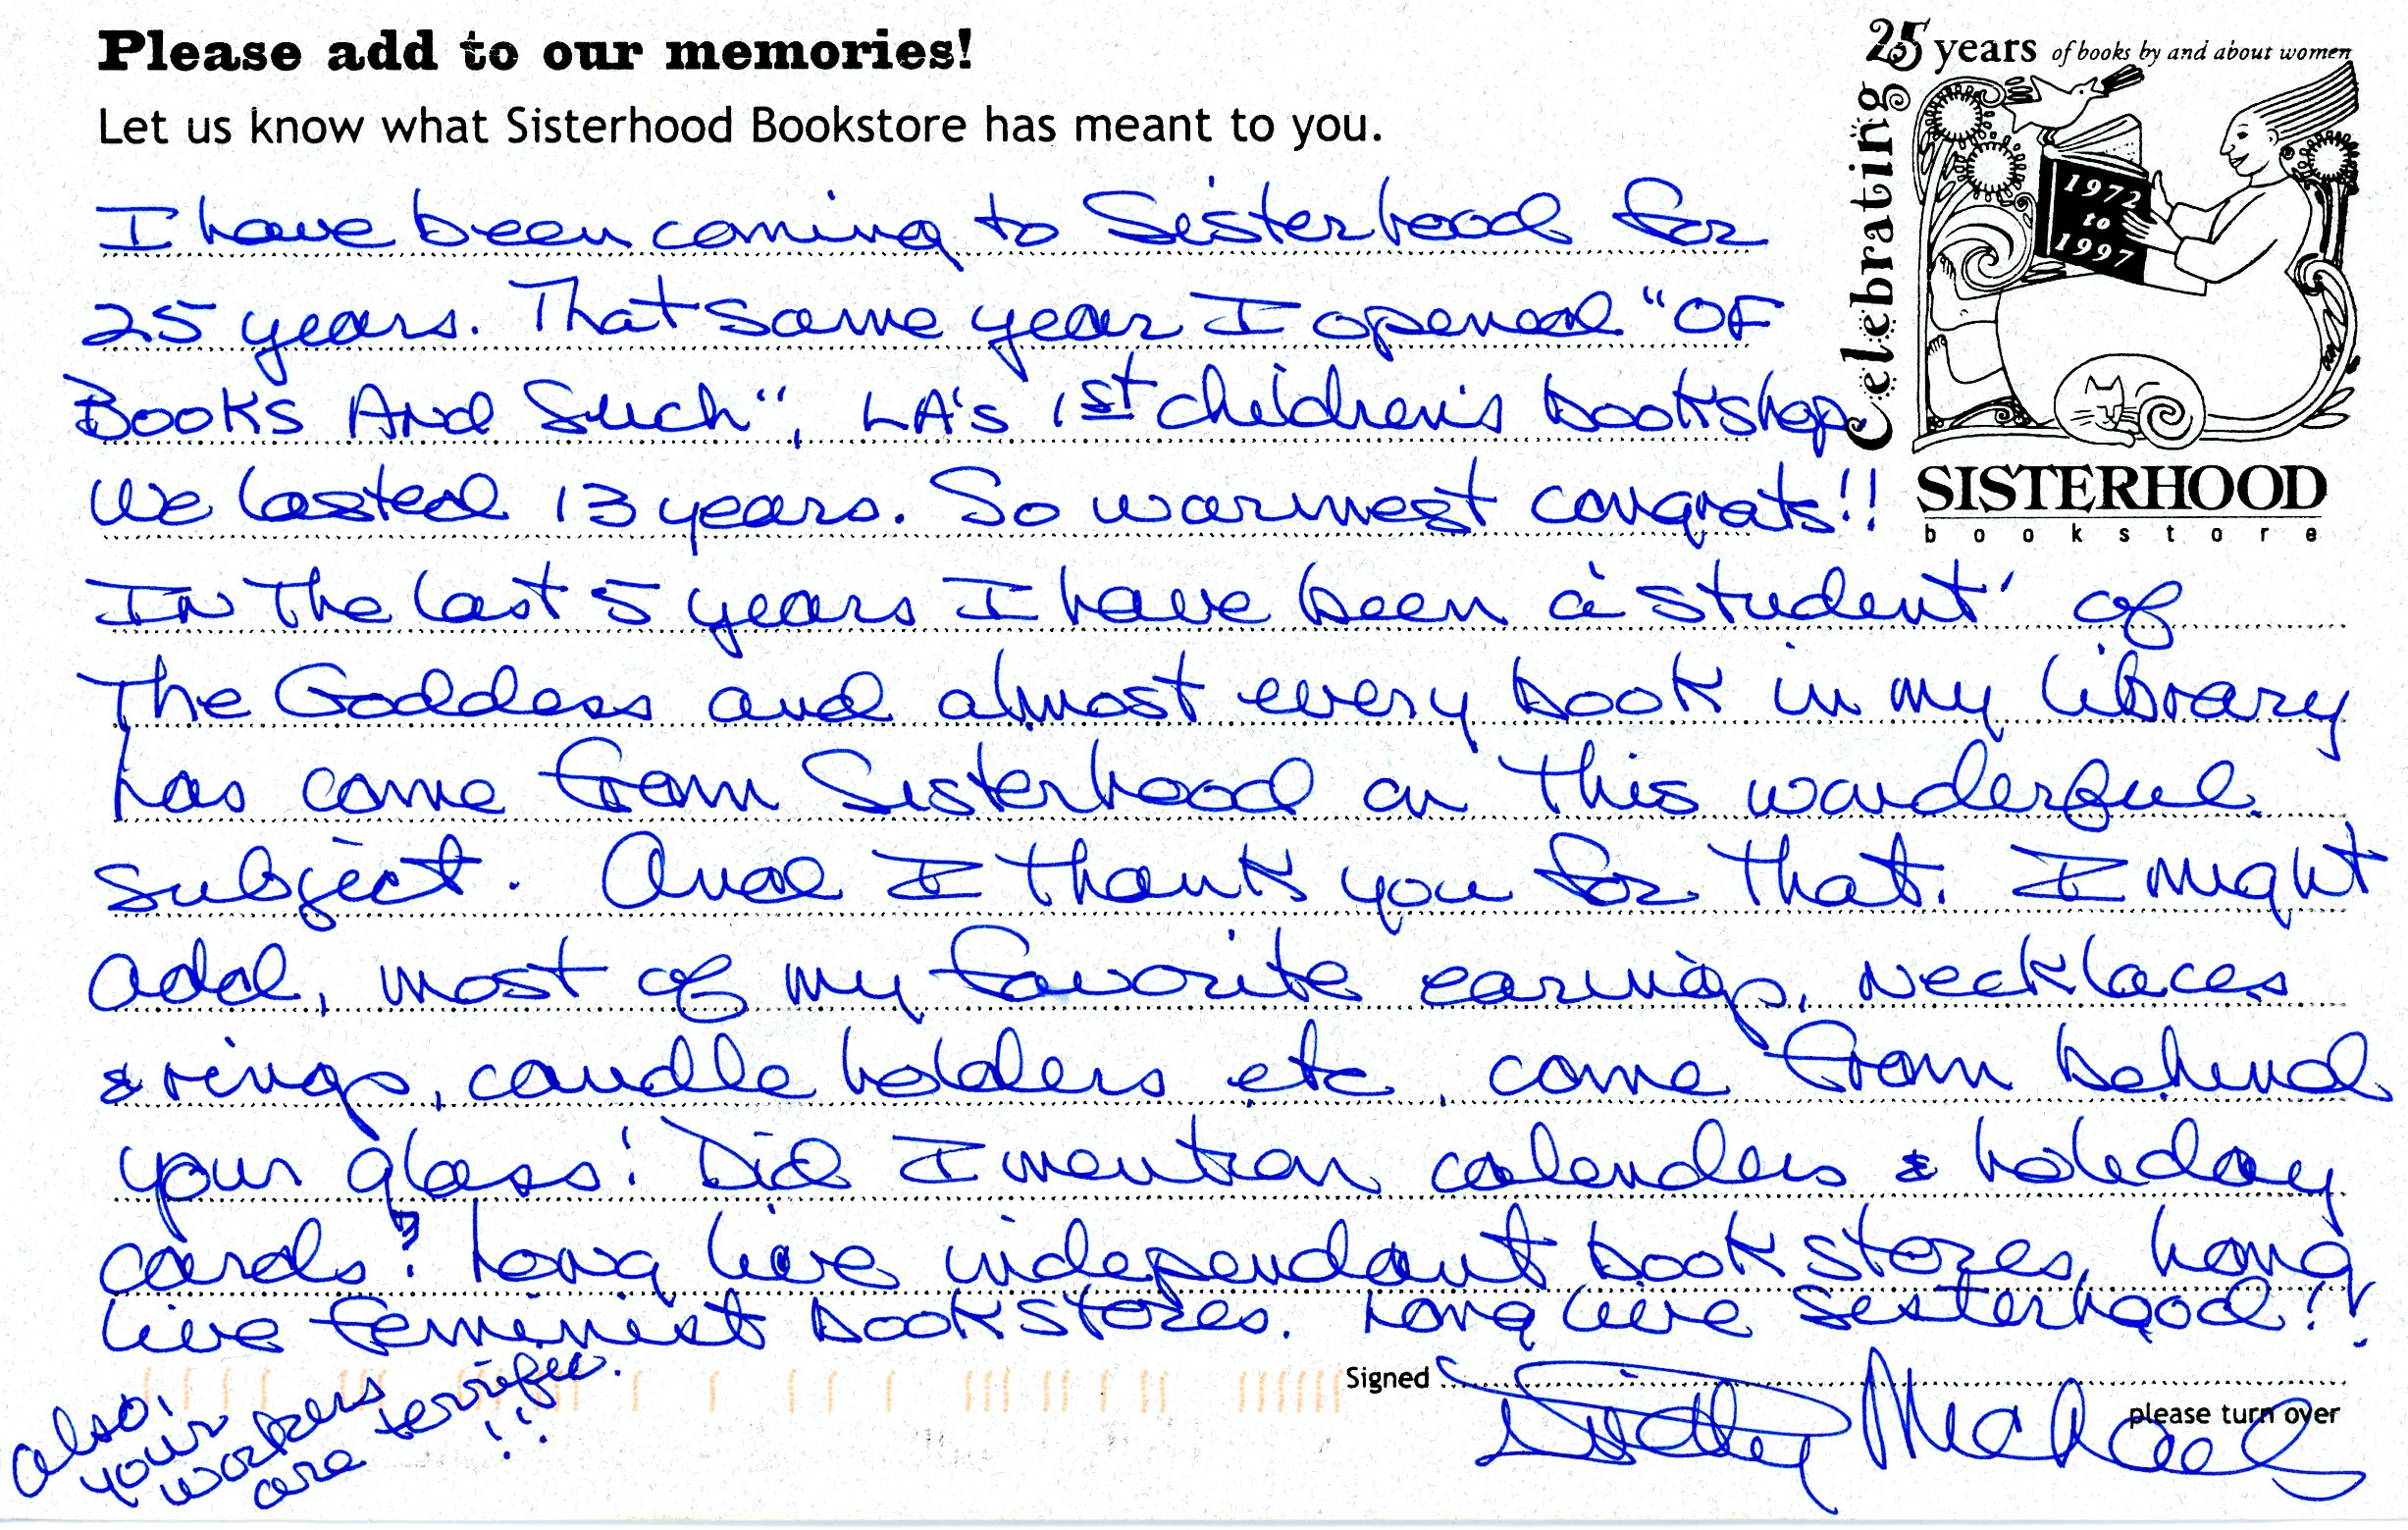 Please add to our memories!
Let us know what Sisterhood Bookstore has meant to you.
25 years of books by and about women
Celebrating
1972
to
1997
SISTERHOOD
bookstore
I have been coming to Sisterhood for
25 years. That same year I opened "OF
Books And Such", LA's 1st children's bookshop
We lasted 13 years. So warmest congrats!!
In The last 5 years I have been a 'student' of
The Goddess and almost every book in my library
has come from Sisterhood on this wonderful
subject. And I thank you for that. I might
add, most of my favorite earings, necklaces
& rings, candle holders etc, come from behind
your glass! Did I mention calenders & holiday
cards? Long live independant bookstores, long
live feminist bookstores. Long live Sisterhood!!
also, your workers are terrific. !!
Signed
Michaels
please turn over